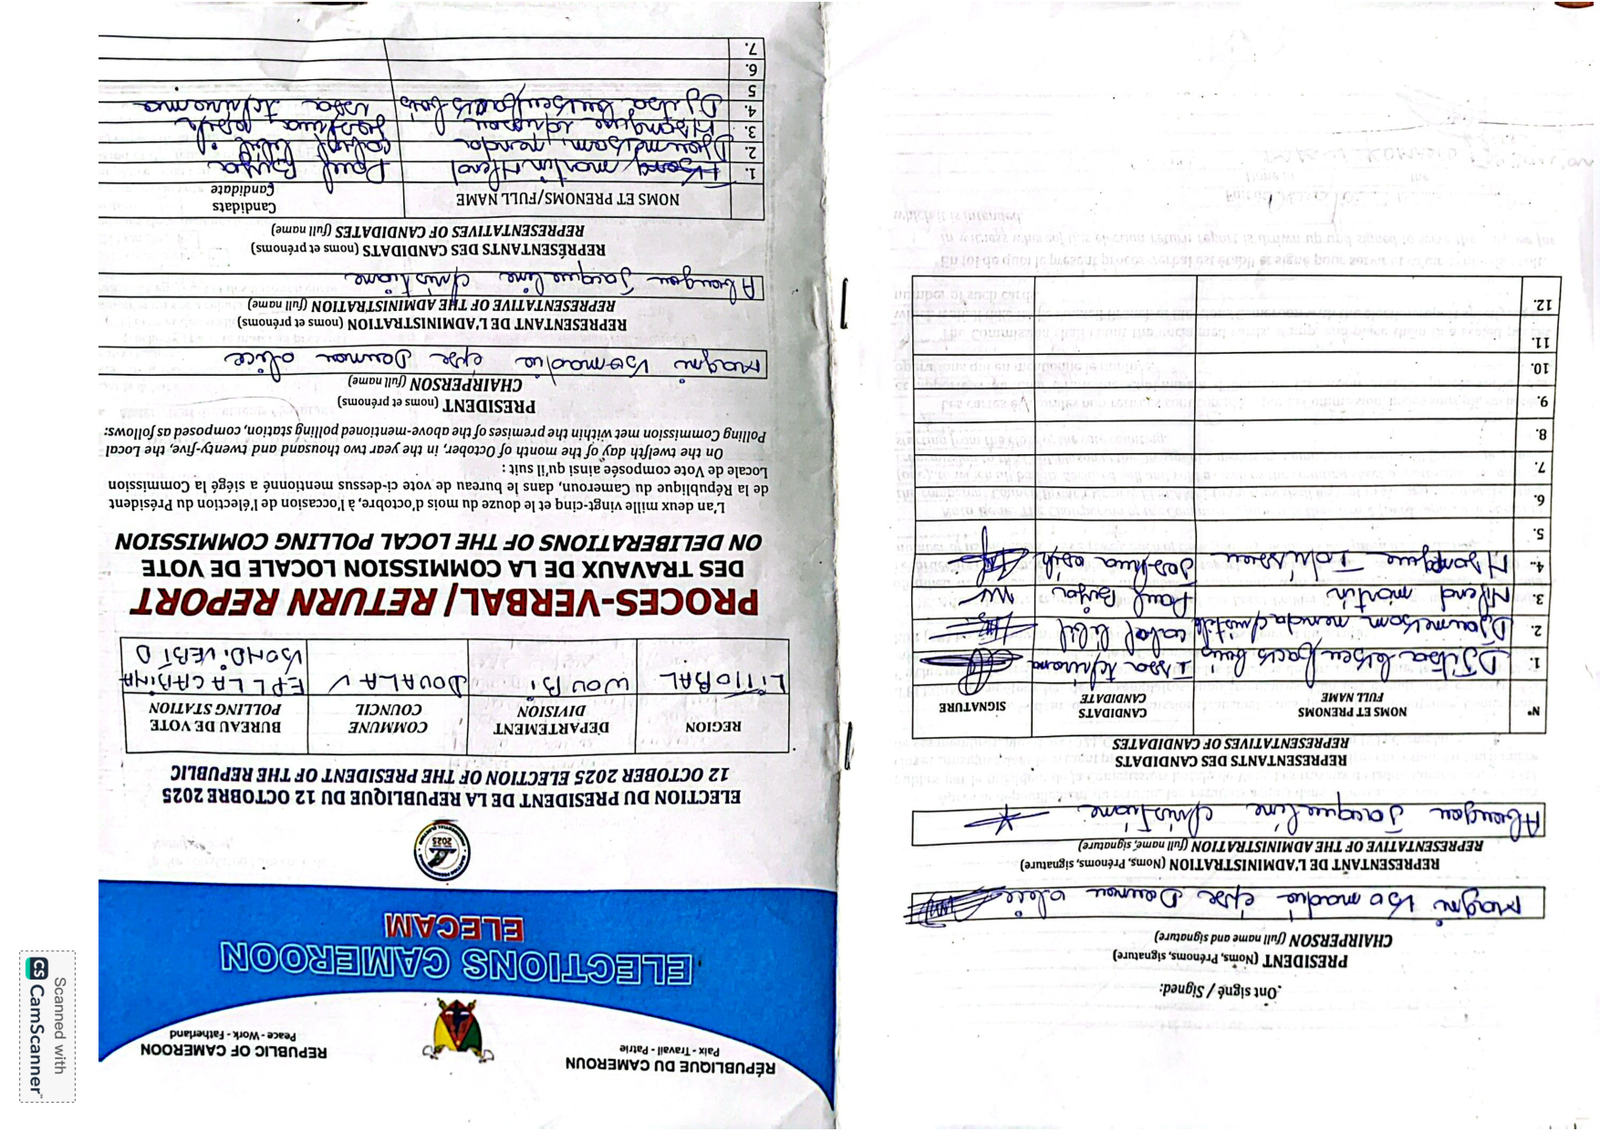 RÉPUBLIQUE DU CAMEROUN
Paix - Travail - Patrie
REPUBLIC OF CAMEROON
Peace - Work - Fatherland
ELECTIONS CAMEROON
ELECAM
ELECTION DU PRESIDENT DE LA REPUBLIQUE DU 12 OCTOBRE 2025
12 OCTOBER 2025 ELECTION OF THE PRESIDENT OF THE REPUBLIC
REGION DÉPARTEMENT DIVISION COMMUNE COUNCIL BUREAU DE VOTE POLLING STATION
LITTORAL WOURI DOUALA V EPL LA CABINA
BONDIVEBI D
PROCES-VERBAL / RETURN REPORT
DES TRAVAUX DE LA COMMISSION LOCALE DE VOTE
ON DELIBERATIONS OF THE LOCAL POLLING COMMISSION
L'an deux mille vingt-cinq et le douze du mois d'octobre, à l'occasion de l'élection du Président
de la République du Cameroun, dans le bureau de vote ci-dessus mentionné a siégé la Commission
Locale de Vote composée ainsi qu'il suit :
On the twelfth day of the month of October, in the year two thousand and twenty-five, the Local
Polling Commission met within the premises of the above-mentioned polling station, composed as follows:
PRESIDENT (noms et prénoms)
CHAIRPERSON (full name)
Magni épse Daumou Alice
REPRÉSENTANT DE L'ADMINISTRATION (noms et prénoms)
REPRESENTATIVE OF THE ADMINISTRATION (full name)
Abengou Jacqueline Christiane
REPRÉSENTANTS DES CANDIDATS (noms et prénoms)
REPRESENTATIVES OF CANDIDATES (full name)
NOMS ET PRENOMS/FULL NAME Candidats Candidate
1. martin Paul Biya
2. menda cabral libii
3. Joshua osih
4. Djitsa Issa tchiroma
5
6.
7.
Ont signé / Signed:
PRESIDENT (Noms, Prénoms, signature)
CHAIRPERSON (full name and signature)
Magni épse Daumou Alice
REPRESENTANT DE L'ADMINISTRATION (Noms, Prénoms, signature)
REPRESENTATIVE OF THE ADMINISTRATION (full name, signature)
Abengou Jacqueline Christiane
REPRESENTANTS DES CANDIDATS
REPRESENTATIVES OF CANDIDATES
N° NOMS ET PRENOMS FULL NAME CANDIDATS CANDIDATE SIGNATURE
1. Djitsa Issa tchiroma
2. menda cabral libii
3. martin Paul Biya
4. Joshua osih
5.
6.
7.
8.
9.
10.
11.
12.
Scanned with
CS CamScanner